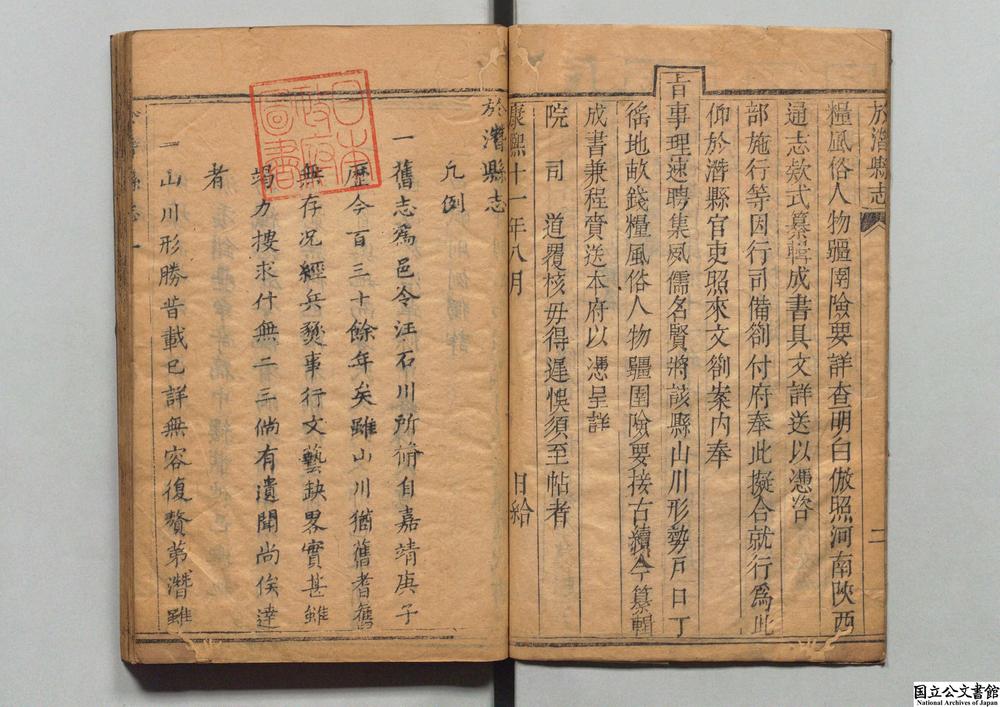 於潛縣志
二
糧風俗人物疆圉險要詳查明白倣照河南陝西
通志欵式纂輯成書具文詳送以憑咨
部施行等因行司備劄付府奉此擬合就行爲此
仰於潛縣官吏照來文劄案內奉
旨事理速聘集風儒名賢將該縣山川形勢戸口丁
徭地畝錢糧風俗人物疆圉險要接古續今纂輯
成書兼程賫送本府以憑呈詳
院司道覆核毋得遲悞須至帖者
康熙十一年八月 日給
於潛縣志
凡例
一舊志爲邑令汪石川所脩自嘉靖庚子
歷今百三十餘年矣雖山川猶舊耆舊
無存况經兵燹事行文藝缺畧實甚雖
竭力搜求什無二三倘有遺聞尚俟達
者
一山川形勝昔載已詳無容復贅第潛雖
日本
政府
圖書
国立公文書館
National Archives of Japan